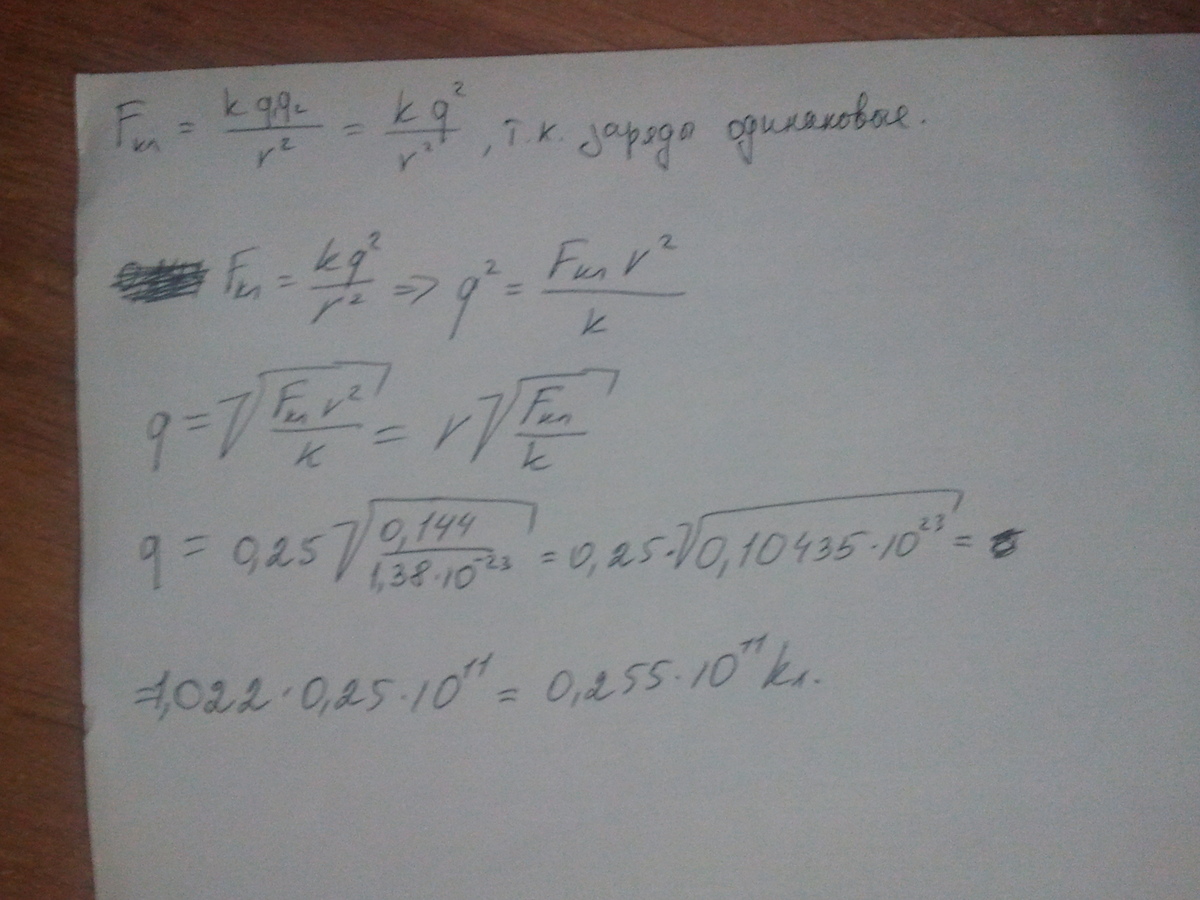 Fкл = kq₁q₂/r² = kq²/r², т.к. заряды одинаковые.
Fкл = kq²/r² => q² = Fкл r²/k
q = √(Fкл r²/k) = r√(Fкл/k)
q = 0,25√(0,144/1,38·10⁻²³) = 0,25·√(0,10435·10²³) =
=1,022·0,25·10¹¹ = 0,255·10¹¹ Кл.